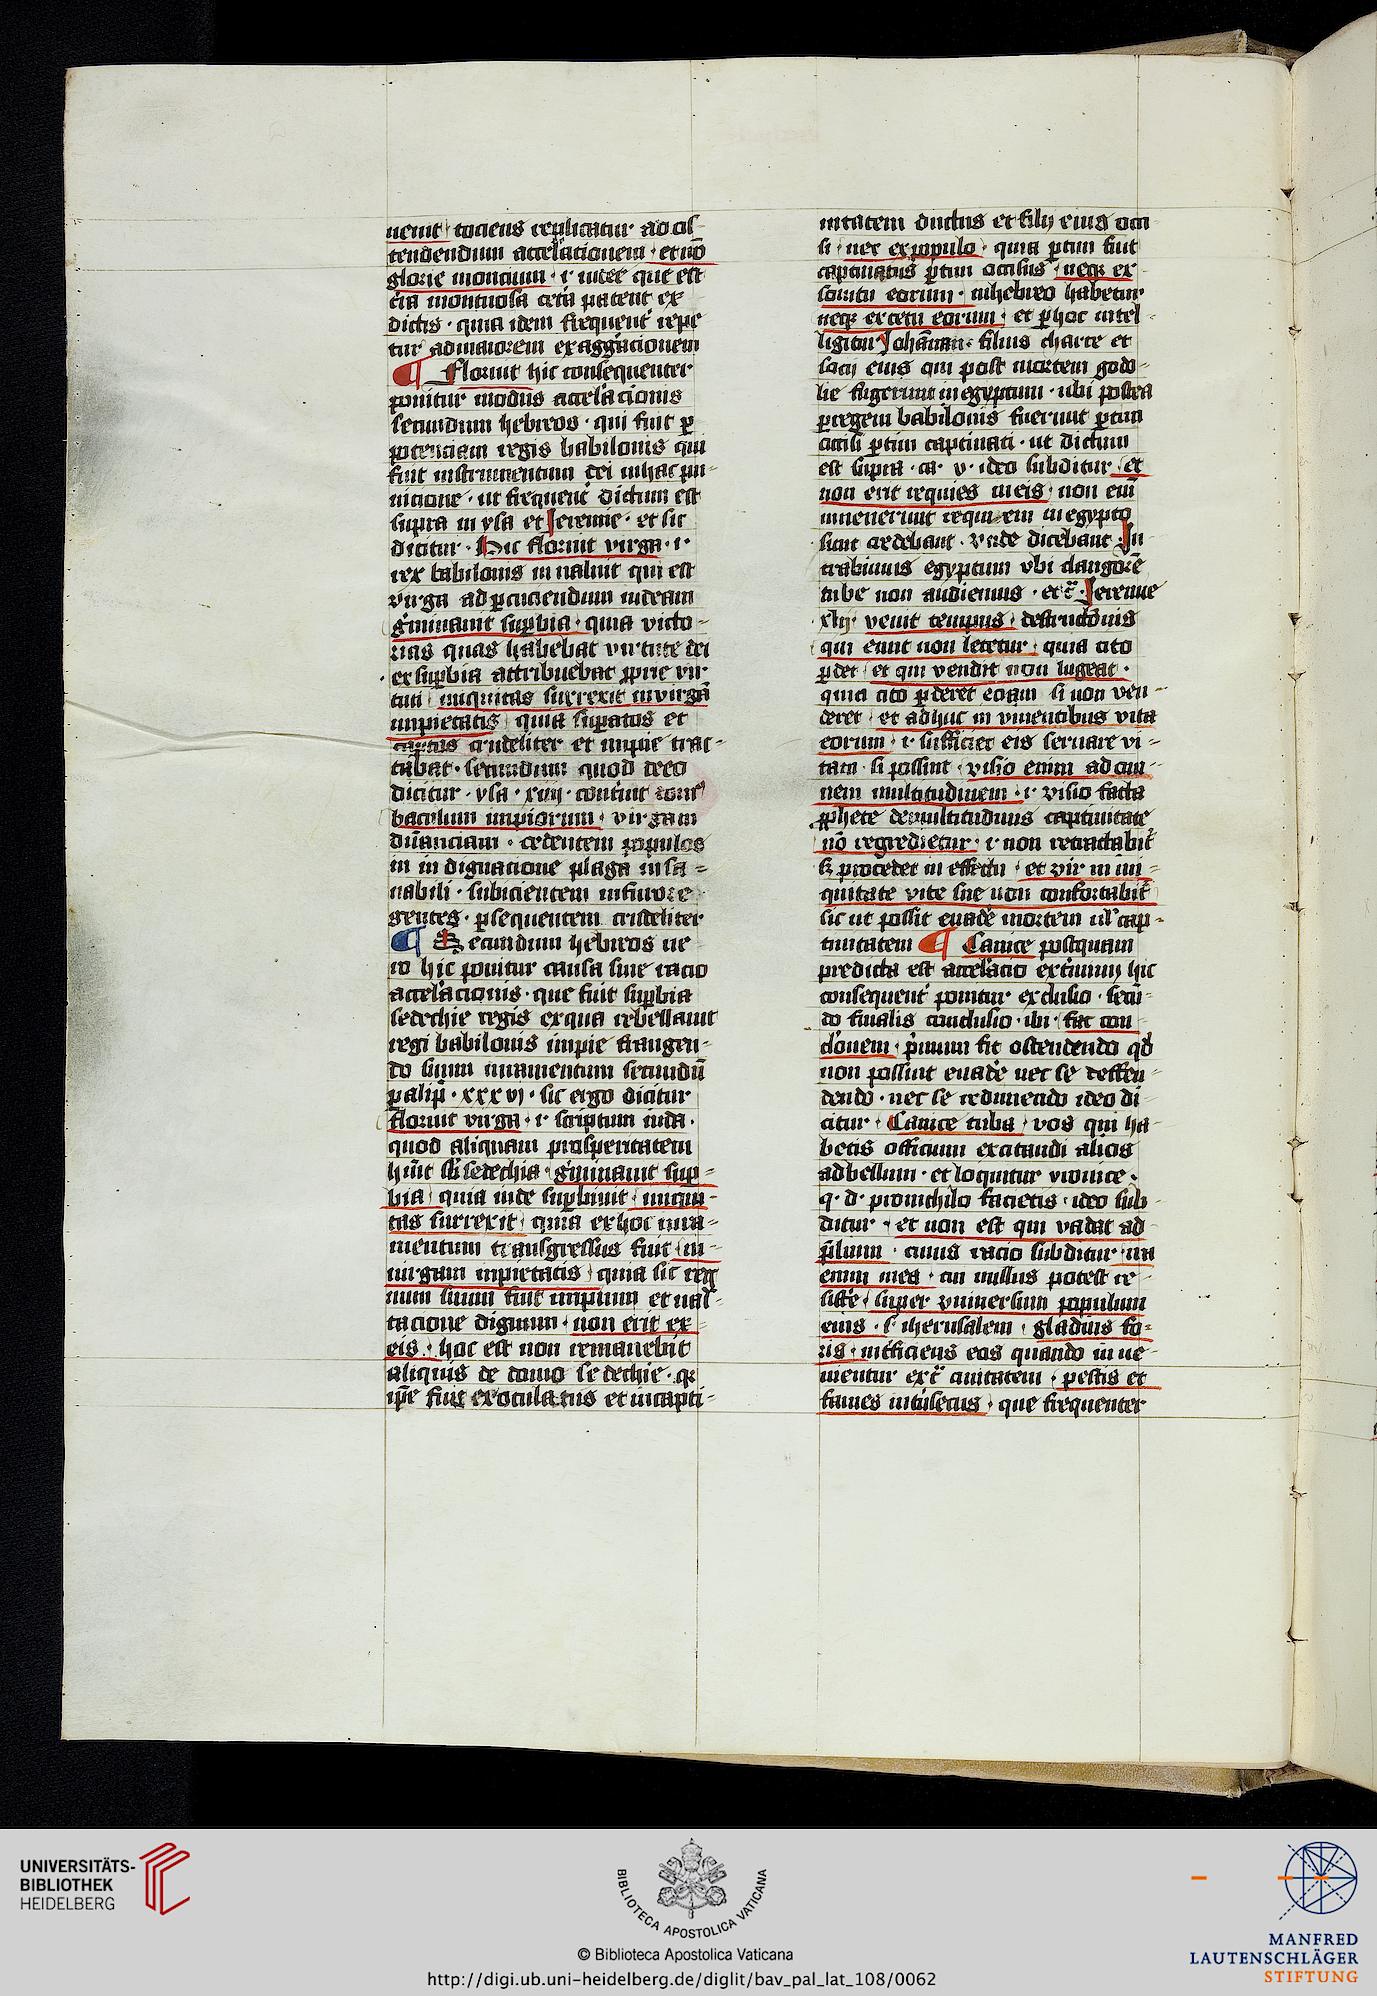 uenit tociens replicatur ad os-
tendendum accelacionem et nō
glorie moncium · i· iudee que est
t̄ra montuosa cet̄a patent ex
dictis · quia idem frequent̄ repe
tur ad maiorem exaggeracionem
¶ Floruit hic consequenter
ponitur modus accel'acionis
secundum hebreos · qui fuit p̲
potenciam regis babilonis qui
fuit instrumentum dei in hac pu-
nicione · ut frequent̄ dictum est
supra in ysa et Jeremie · et sic
dicitur · Hic floruit virga · i·
rex babilonis in ualuit qui est
virga ad p̲cuciendum iudeam
g̃minauit sup̲bia · quia victo-
rias quas habebat virtute dei
ex sup̲bia attribuebat p̱prie vir
tuti iniquitas surrexit in virgā
impietatis quia sup̲atos et
captos crudeliter et impie trac-
tabat · secundum quod deco
dicitur · ysa · xiiij · contriuit
baculum impiorum · virgam
dn̄anciam · cedentem populos
in in dignatione plaga insa-
nabili · subicientem in furore
gentes · p̲sequentem crudeliter
¶ Secundum hebreos ue
ro hic ponitur causa siue racio
accel'acionis · que fuit sup̲bia
sedechie regis ex qua rebellauit
regi babilonis impie frangen-
do suum iuramentum secundū
palip̄ · xxxvj · sic ergo dicitur
floruit virga · i· sceptrum iuda ·
quod aliquam prosperitatem
hūit sb̄ sedechia · g̃minauit sup̲-
bia quia inde sup̲biuit iniqui-
tas surrexit quia ex hoc iura-
mentum transgressus fuit in
uirgam inpietatis quia sic reg
num suum fuit impium et uas-
tacione dignum · non erit ex
eis · hoc est non remanebit
aliquis de domo sedechie · q̄
ip̄e fuit exoculatus et in capti-
uitatem ductus et filij eius occi
si · nec ex populo · quia p̲tim fuit
captiuatus p̲tim occisus neq; ex
sonitu eorum · in hebreo habetur
neq; ex cetu eorum · et p̲ hoc intel-
ligitur Johānan · filius charee et
socij eius qui post mortem godo-
lie fugerunt in egyptum · ubi postea
p̲ regem babilonis fuerunt p̲tim
occisi p̲tim captiuati · ut dictum
est supra · ca · v · ideo subditur et
non erit requies in eis non enī
inuenerunt requiem in egypto
sicut credebant · vnde dicebant In
trabimus egyptum vbi clangorē
tube non audiemus · et c̄ · Jeremie
xlij · venit tempus destructōnis
qui emit non letetur quia cito
p̲det et qui vendit non lugeat ·
quia cito p̲deret eciam si non ven-
deret et adhuc in viuentibus vita
eorum · i· sufficiet eis seruare vi-
tam · si possint · visio enim ad om-
nem multitudinem · i· visio facta
p̱phete de multitudinis captiuitate
nō regredietur · i· non retractabit̄
s; procedet in effectu et vir in ini-
quitate vite sue non confortabit̄
sic ut possit euad'e mortem ul' cap-
tiuitatem ¶ Canite postquam
predicta est accel'acio ext̄miniu hic
consequent̄ ponitur exclusio · secū-
do finalis conclusio · ibi · fac con
cl'onem · p̄mum fit ostendendo qd̄
non possint euad'e nec se deffen-
dendo · nec se redimendo ideo di
citur · Canite tuba vos qui ha-
betis officium excitandi alios
ad bellum · et loquitur yronice ·
q· d· pro nichilo facietis · ideo sub-
ditur · et non est qui vadat ad
p̄lium · cuius racio subditur ira
enim mea · cui nullus potest re-
sist'e · super vniuersum populum
eius · s· iherusalem gladius fo-
ris · int̄ficiens eos quando inue-
nientur ext̄ ciuitatem pestis et
fames int̄insecus · que frequenter
UNIVERSITÄTS-
BIBLIOTHEK
HEIDELBERG
BIBLIOTECA APOSTOLICA VATICANA
© Biblioteca Apostolica Vaticana
http://digi.ub.uni-heidelberg.de/diglit/bav_pal_lat_108/0062
MANFRED
LAUTENSCHLÄGER
STIFTUNG